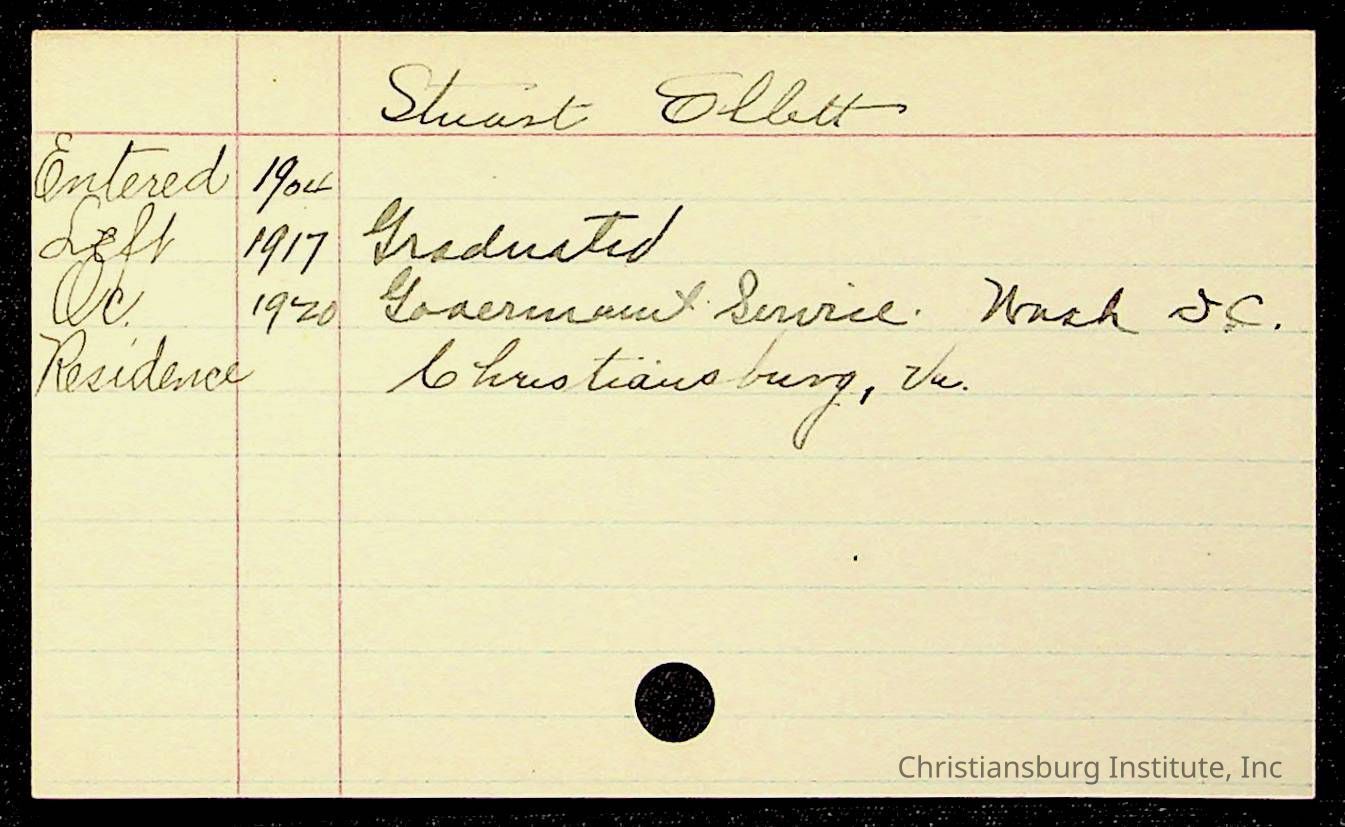 Stuart Ellett
Entered 1904
Left 1917 Graduated
Oc. 1920 Goverment Service. Wash D.C.
Residence Christiansburg, Va.
Christiansburg Institute, Inc